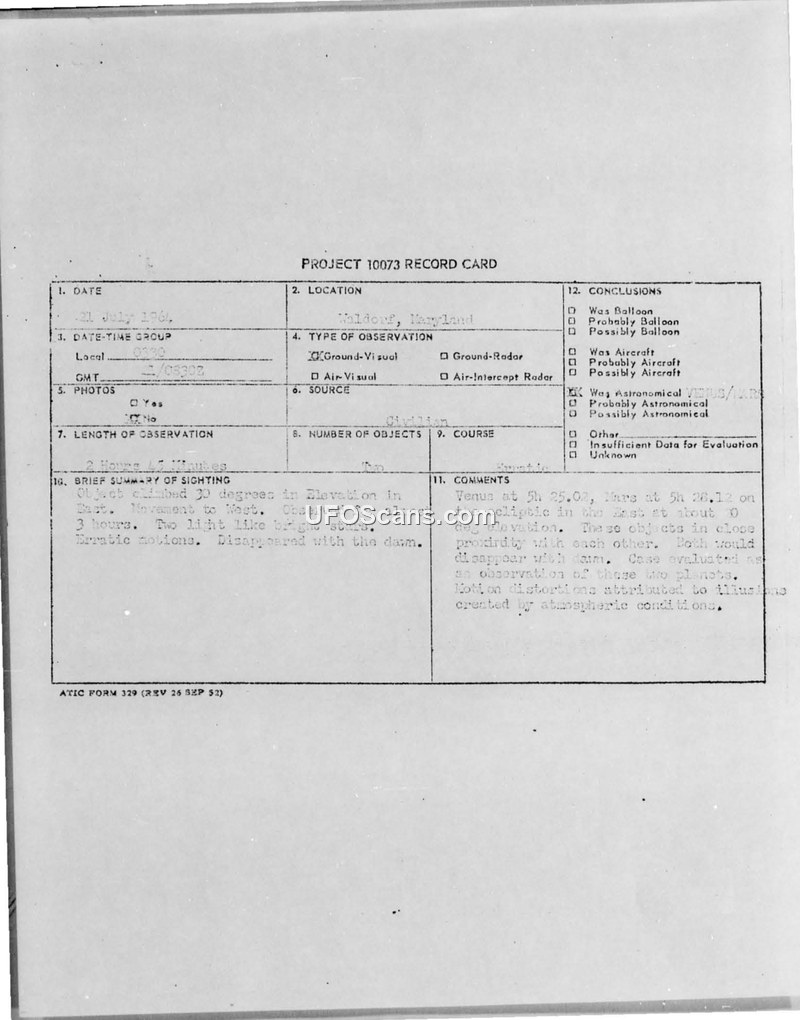 PROJECT 10073 RECORD CARD
1. DATE
21 July 1964
2. LOCATION
Waldorf, Maryland
3. DATE-TIME GROUP
Local
GMT 21/0830Z
4. TYPE OF OBSERVATION
Ground-Visual
Ground-Radar
Air-Visual
Air-Intercept Radar
5. PHOTOS
Yes
No
6. SOURCE
Civilian
7. LENGTH OF OBSERVATION
2 Hours 45 Minutes
8. NUMBER OF OBJECTS
Two
9. COURSE
Erratic
10. BRIEF SUMMARY OF SIGHTING
Object climbed 30 degrees in Elevation in
East. Movement to West.
3 hours. Two light like bright stars.
Erratic motions. Disappeared with the dawn.
11. COMMENTS
Venus at 5h 25.02, Mars at 5h 28.12 on
ecliptic in the East at about
deg elevation. These objects in close
proximity with each other. Both would
disappear with dawn. Case evaluated as
an observation of these two planets.
Motion distortions attributed to illusions
created by atmospheric conditions.
12. CONCLUSIONS
Was Balloon
Probably Balloon
Possibly Balloon
Was Aircraft
Probably Aircraft
Possibly Aircraft
Was Astronomical VENUS/MARS
Probably Astronomical
Possibly Astronomical
Other
Insufficient Data for Evaluation
Unknown
UFOScans.com
ATIC FORM 329 (REV 26 SEP 52)